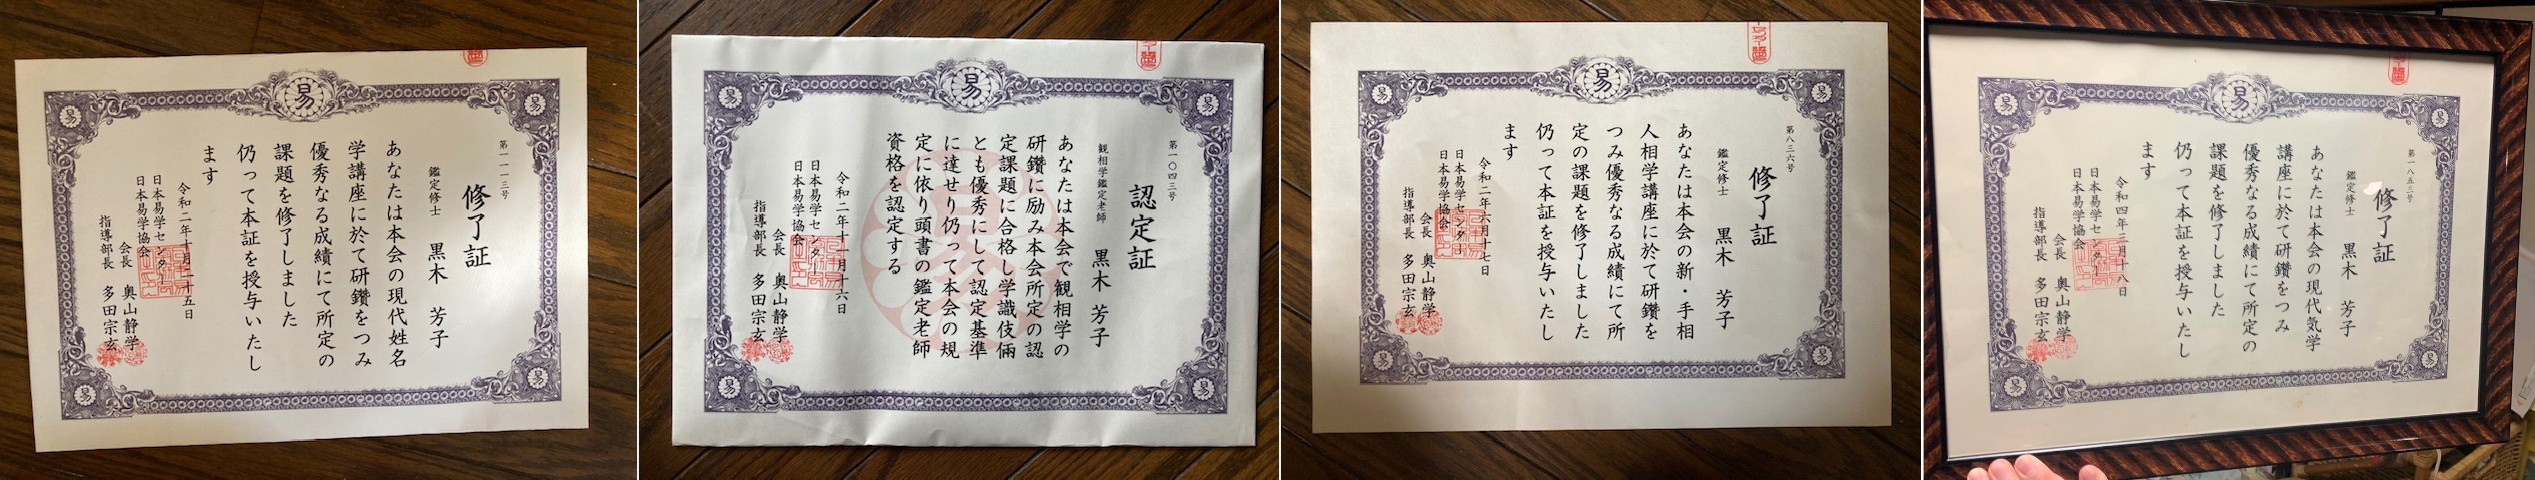 易
第一一一三号
修了証
鑑定修士 黒木 芳子
あなたは本会の現代姓名
学講座に於て研鑽をつみ
優秀なる成績にて所定の
課題を修了しました
仍って本証を授与いたし
ます
令和二年十月二十五日
日本易学センター
日本易学協会
会長 奥山静学
指導部長 多田宗玄
易
第一〇四三号
認定証
観相学鑑定老師 黒木 芳子
あなたは本会で観相学の
研鑽に励み本会所定の認
定課題に合格し学識伎倆
とも優秀にして認定基準
に達せり仍って本会の規
定に依り頭書の鑑定老師
資格を認定する
令和二年十一月十六日
日本易学センター
日本易学協会
会長 奥山静学
指導部長 多田宗玄
易
第八三六号
修了証
鑑定修士 黒木 芳子
あなたは本会の新・手相
人相学講座に於て研鑽を
つみ優秀なる成績にて所
定の課題を修了しました
仍って本証を授与いたし
ます
令和二年六月十七日
日本易学センター
日本易学協会
会長 奥山静学
指導部長 多田宗玄
易
第一八五三号
修了証
鑑定修士 黒木 芳子
あなたは本会の現代気学
講座に於て研鑽をつみ
優秀なる成績にて所定の
課題を修了しました
仍って本証を授与いたし
ます
令和四年三月十八日
日本易学センター
日本易学協会
会長 奥山静学
指導部長 多田宗玄